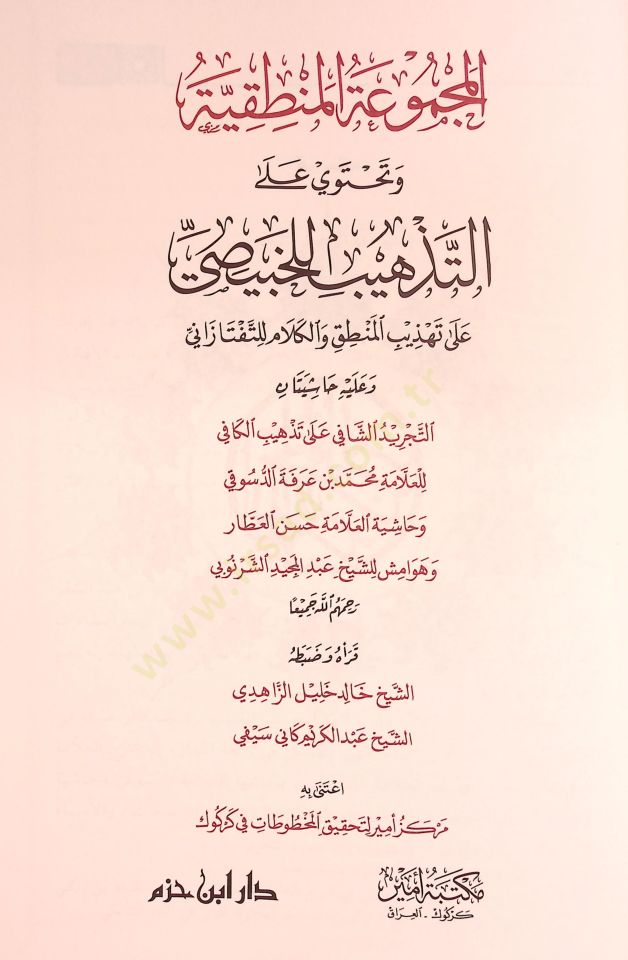 المجموعة المنطقية
وتحتوي على
التذهيب للخبيصي
على تهذيب المنطق والكلام للتفتازاني
وعليه حاشيتان
التجريد الشافي على تذهيب الكافي
للعلامة محمد بن عرفة الدسوقي
وحاشية العلامة حسن العطار
وهوامش للشيخ عبد المجيد الشرنوبي
رحمهم الله جميعا
قرأه وضبطه
الشيخ خالد خليل الزاهدي
الشيخ عبد الكريم كاني سيفي
اعتنى به
مركز أمير لتحقيق المخطوطات في كركوك
مكتبة أمير
كركوك - العراق
دار ابن حزم